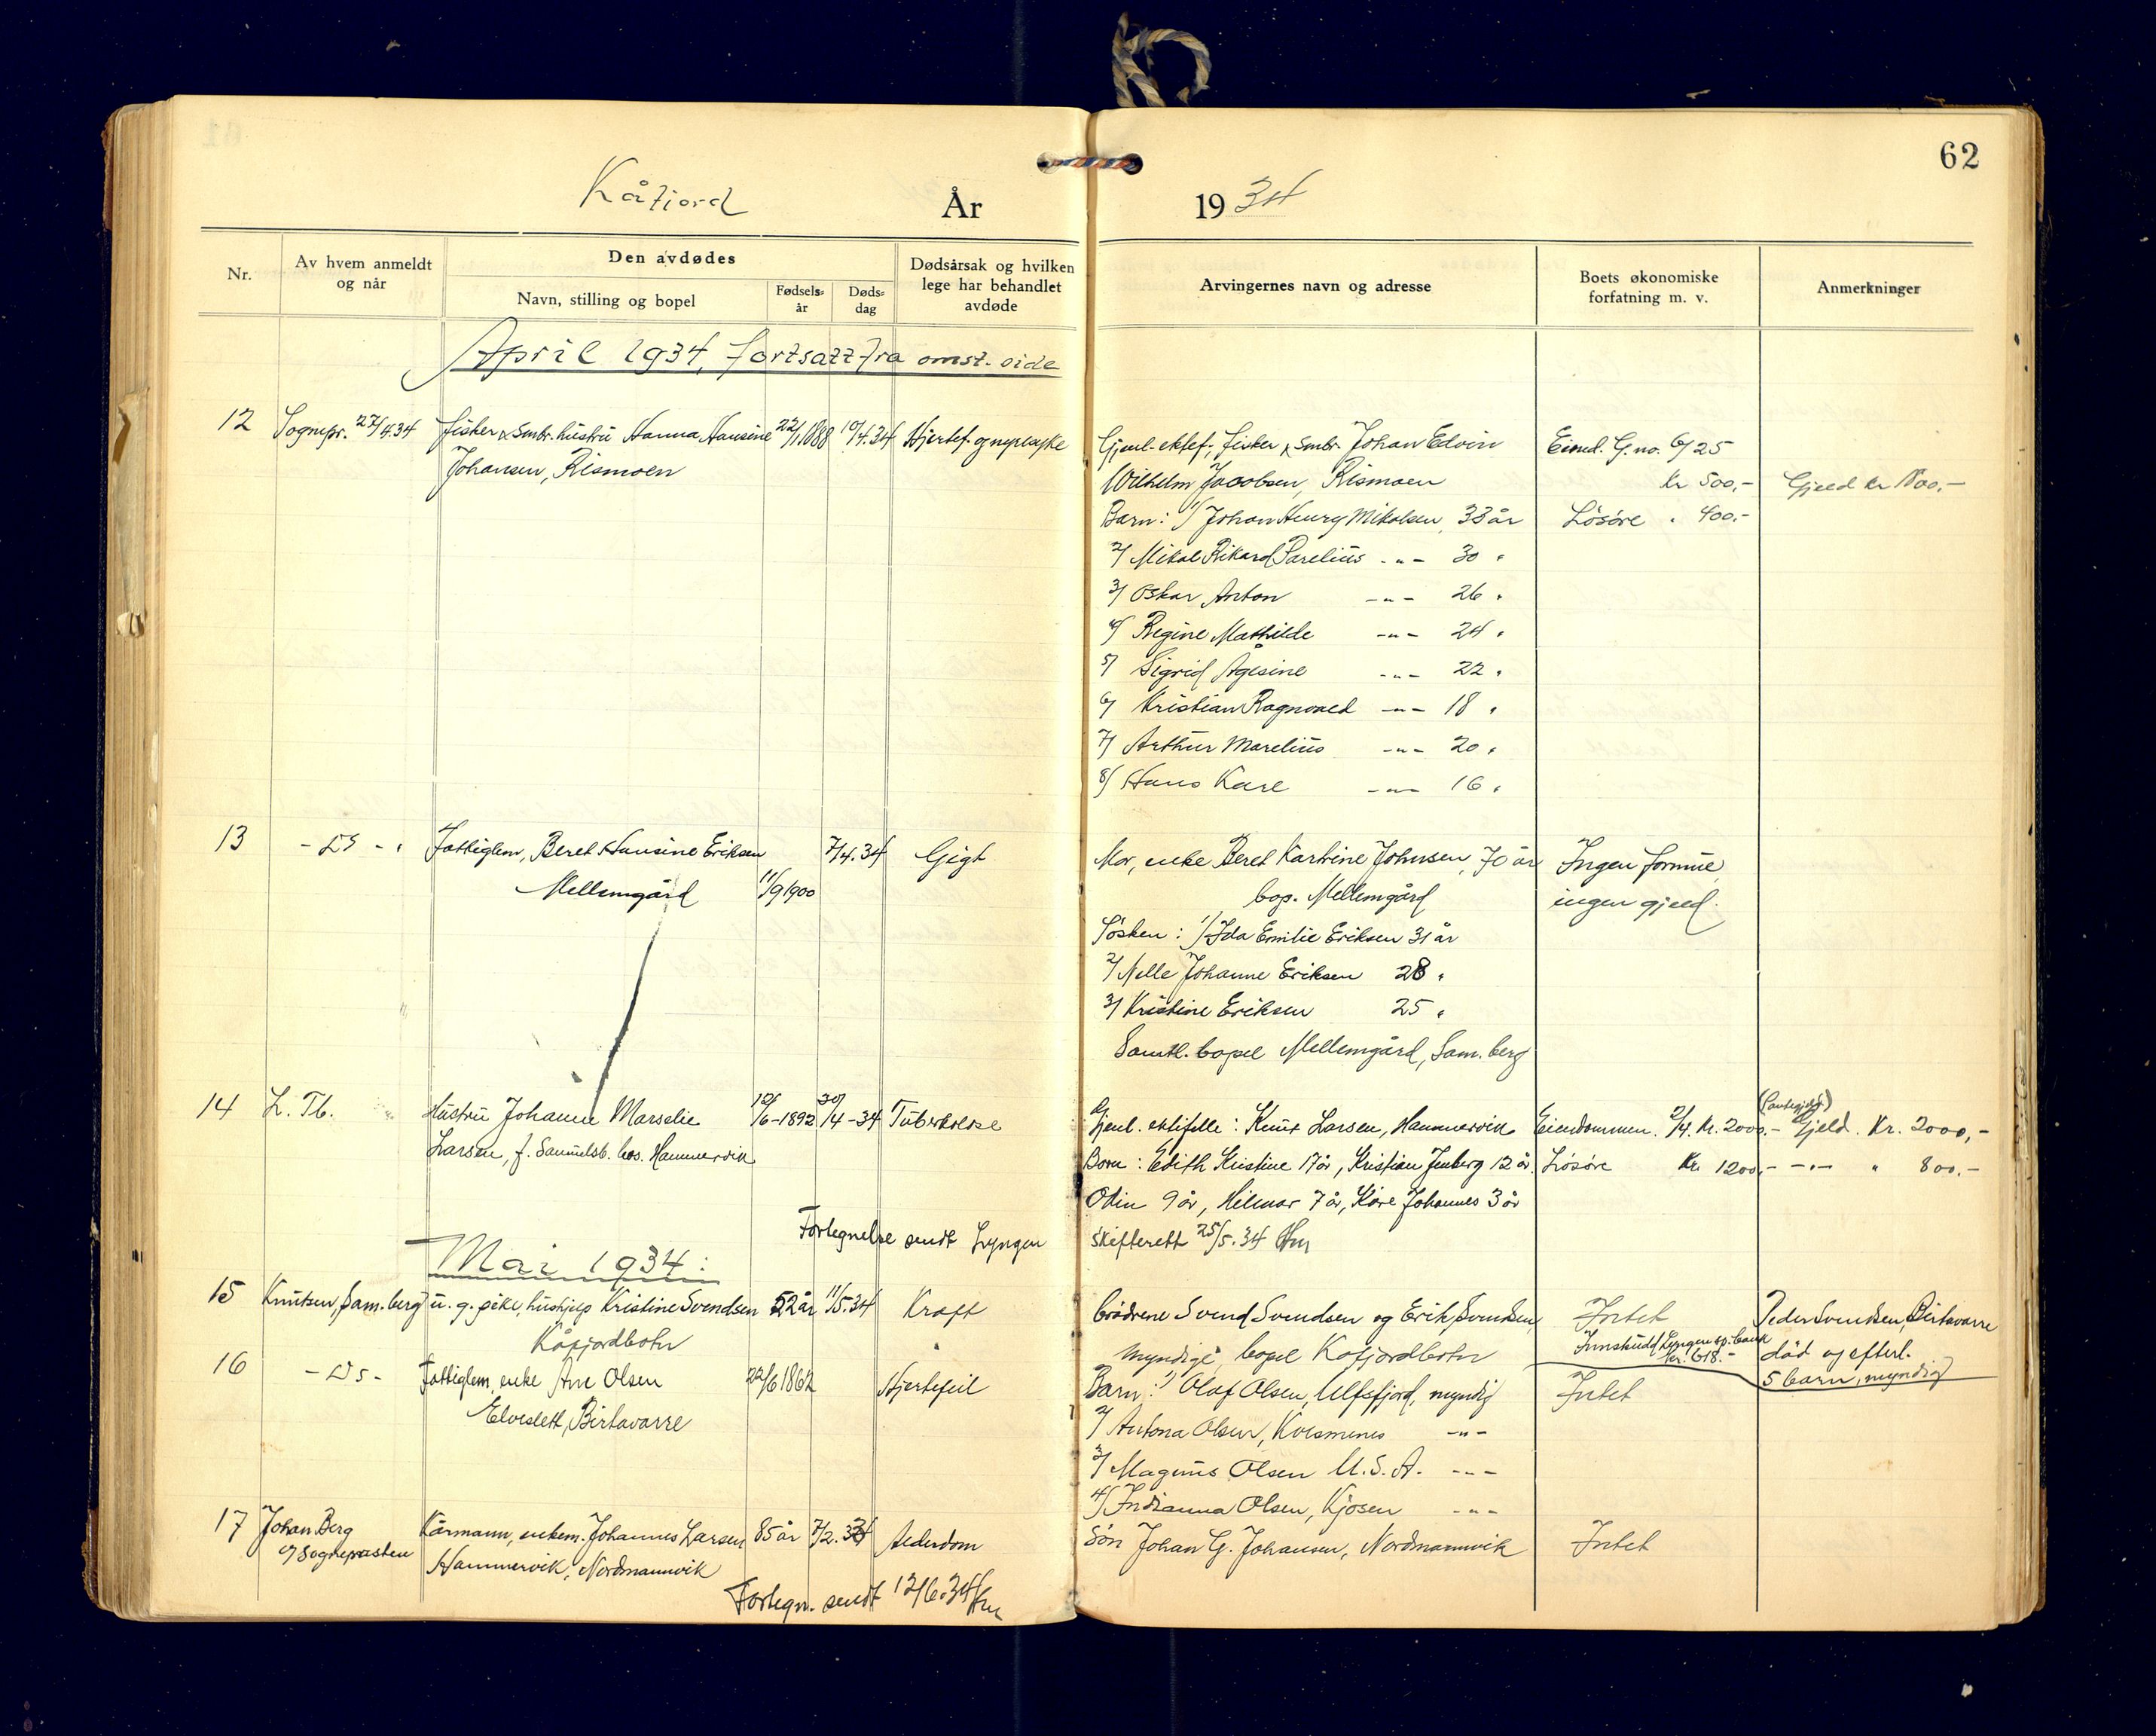 62
Kåfjord År 1934
Nr. Av hvem anmeldt og når Den avdødes Navn, stilling og bopel Fødselsår Dødsdag Dødsårsak og hvilken lege har behandlet avdøde Arvingernes navn og adresse Boets økonomiske forfatning m. v. Anmerkninger
April 1934, fortsatt fra omst. side
12 Sognepr. 27/4.34 Fisker & smbr. hustru Hanna Hansine 22/1.1888 10/4.34 Hjertef. og nyresyke Gjenl. ektef., fisker & smbr. Johan Edvin Eiend. G.no. 6/25
Johansen, Rismoen Wilhelm Jacobsen, Rismoen kr 500,- Gjeld kr
Barn: 1/ Johan Henry Mikalsen, 33 år Løsøre " 400.-
2/ Mikal Rikard Parelius -"- 30 "
3/ Oskar Anton -"- 26 "
4/ Regine Mathilde -"- 24 "
5/ Sigrid Ågesine -"- 22 "
6/ Kristian Ragnvald -"- 18 "
7/ Arthur Marelius -"- 20 "
8/ Hans Kare -"- 16 "
13 Fattiglem, Beret Hansine Eriksen 7/4.34 Gigt Mor, enke Beret Katrine Johnsen, 70 år Ingen formue
Mellemgård 11/9 1900 bop. Mellemgård ingen gjeld.
Søsken: 1/ Ida Emilie Eriksen 31 år
2/ Nelle Johanne Eriksen 28 "
3/ Kristine Eriksen 25 "
Samtl. bopel Mellemgård, Sam.berg
14 L. Tb. Hustru Johanne Marselie 12/6-1892 30/4-34 Tuberkulose Gjenl. ektefelle: Knut Larsen, Hammervik Eiendommen. 2/4. kr. 2000.- (Pantegjeld.) Gjeld. Kr. 2000,-
Larsen, f. Samuelsb. bos. Hammervik Born: Edith Kristine 17 år, Kristian Jenberg 12 år. Løsøre Kr. 1200.- -"- " 800.-
Odin 9 år, Hilmar 7 år, Kåre Johannes 3 år
Fortegnelse sendt Lyngen skifterett 25/5.34 Hm
Mai 1934:
15 Knutsen, Sam.berg u. g. pike, hushjelp Kristine Svendsen 52 år 11/5.34 Kræft Brødrene Svend Svendsen og Erik Svendsen, Intet Peder Svendsen, Birtavarre
Kåfjordbotn myndige, bopel Kåfjordbotn Innskudd Lyngen sp.bank kr. 618.- død og efterl.
5 barn, myndig
16 Fattiglem, enke Ane Olsen 22/6 1862 Hjertefeil Barn: 1/ Olaf Olsen, Ulfsfjord, myndig Intet
Elveslett, Birtavarre 2/ Antona Olsen, Kvesmenes -"-
3/ Magnus Olsen U.S.A. -"-
4/ Indianna Olsen, Kjosen -"-
17 Johan Berg Kårmann, enkem. Johannes Larsen 85 år 7/2.34 Alderdom Søn Johan G. Johansen, Nordmannvik Intet
og Sognepresten Hammervik, Nordmannvik
Fortegn. sendt 12/6.34 Hm